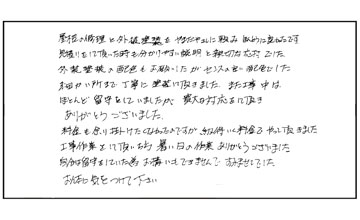 屋根の修理と外壁塗装をやまだやさんに頼み 良かったです
見積りをして頂いた時も分かりやすい説明と親切な対応でした
外装塗装の配色もお願いしたが センスの良い配色でした
細かい所まで丁寧に塗装して頂きました。また工事中は
ほとんど留守をしていましたが 最大の対応をして頂き
ありがとうございました。
料金も 頂いたのですが 納得いく料金で やって頂きました
工事作業をして頂いた方 暑い日の作業 ありがとうございました
留守をしていた為 お構いもできませんで すみませんでした
お体に気をつけて下さい